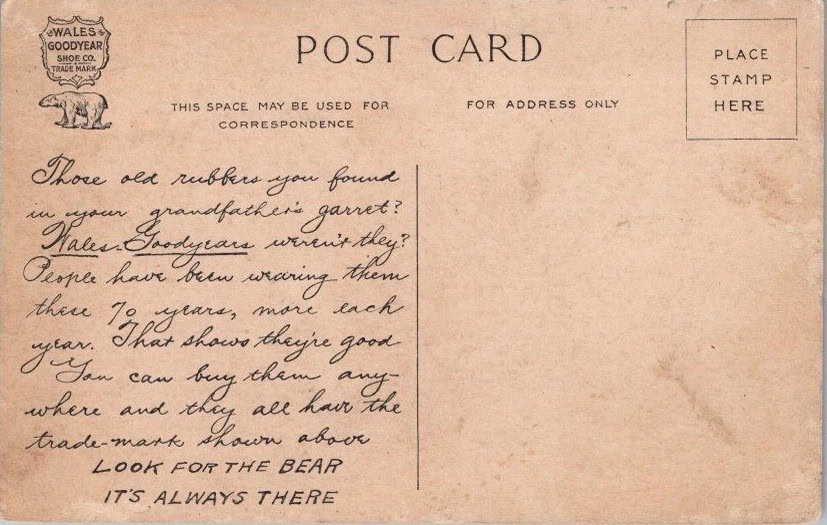 WALES
GOODYEAR
SHOE CO.
TRADE MARK
POST CARD
THIS SPACE MAY BE USED FOR
CORRESPONDENCE
FOR ADDRESS ONLY
PLACE
STAMP
HERE
Those old rubbers you found
in your grandfather's garret?
Wales-Goodyears weren't they?
People have been wearing them
these 70 years, more each
year. That shows they're good
You can buy them any-
where and they all have the
trade-mark shown above
LOOK FOR THE BEAR
IT'S ALWAYS THERE